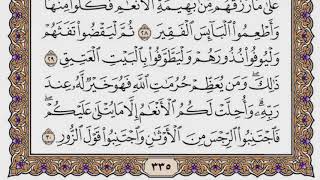 عَلَىٰ مَا رَزَقَهُم مِّنۢ بَهِيمَةِ ٱلۡأَنۡعَٰمِۖ فَكُلُواْ مِنۡهَا
وَأَطۡعِمُواْ ٱلۡبَآئِسَ ٱلۡفَقِيرَ ٢٨ ثُمَّ لۡيَقۡضُواْ تَفَثَهُمۡ
وَلۡيُوفُواْ نُذُورَهُمۡ وَلۡيَطَّوَّفُواْ بِٱلۡبَيۡتِ ٱلۡعَتِيقِ
٢٩ ذَٰلِكَۖ وَمَن يُعَظِّمۡ حُرُمَٰتِ ٱللَّهِ فَهُوَ خَيۡرٞ لَّهُۥ عِندَ
رَبِّهِۦۗ وَأُحِلَّتۡ لَكُمُ ٱلۡأَنۡعَٰمُ إِلَّا مَا يُتۡلَىٰ عَلَيۡكُمۡۖ
فَٱجۡتَنِبُواْ ٱلرِّجۡسَ مِنَ ٱلۡأَوۡثَٰنِ وَٱجۡتَنِبُواْ قَوۡلَ ٱلزُّورِ ٣٠
٣٣٥